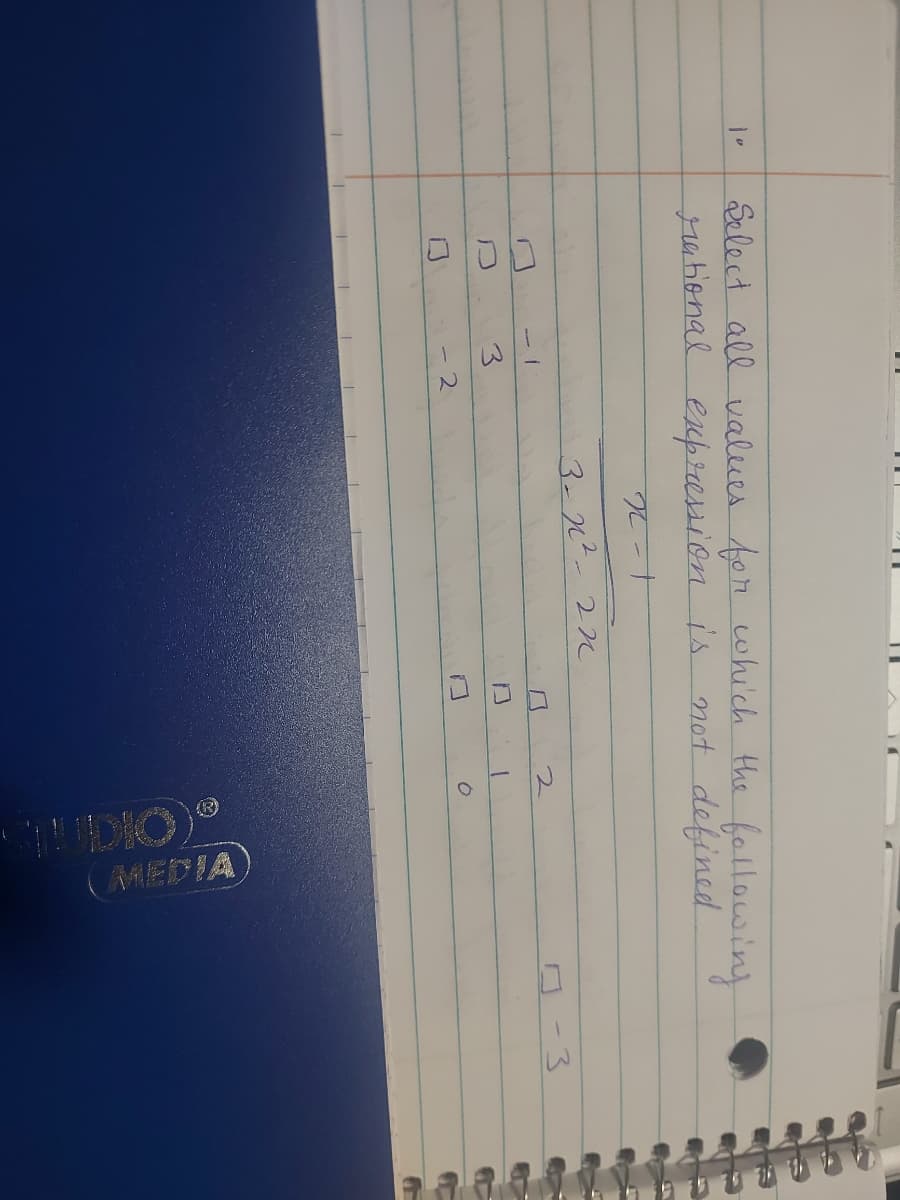 1. Select all values for which the following
rational expression is not defined
x - 1
3 - x² - 2x
□ -1 □ 2 □ -3
□ 3 □ 1
□ -2 □ 0
STUDIO®
MEDIA